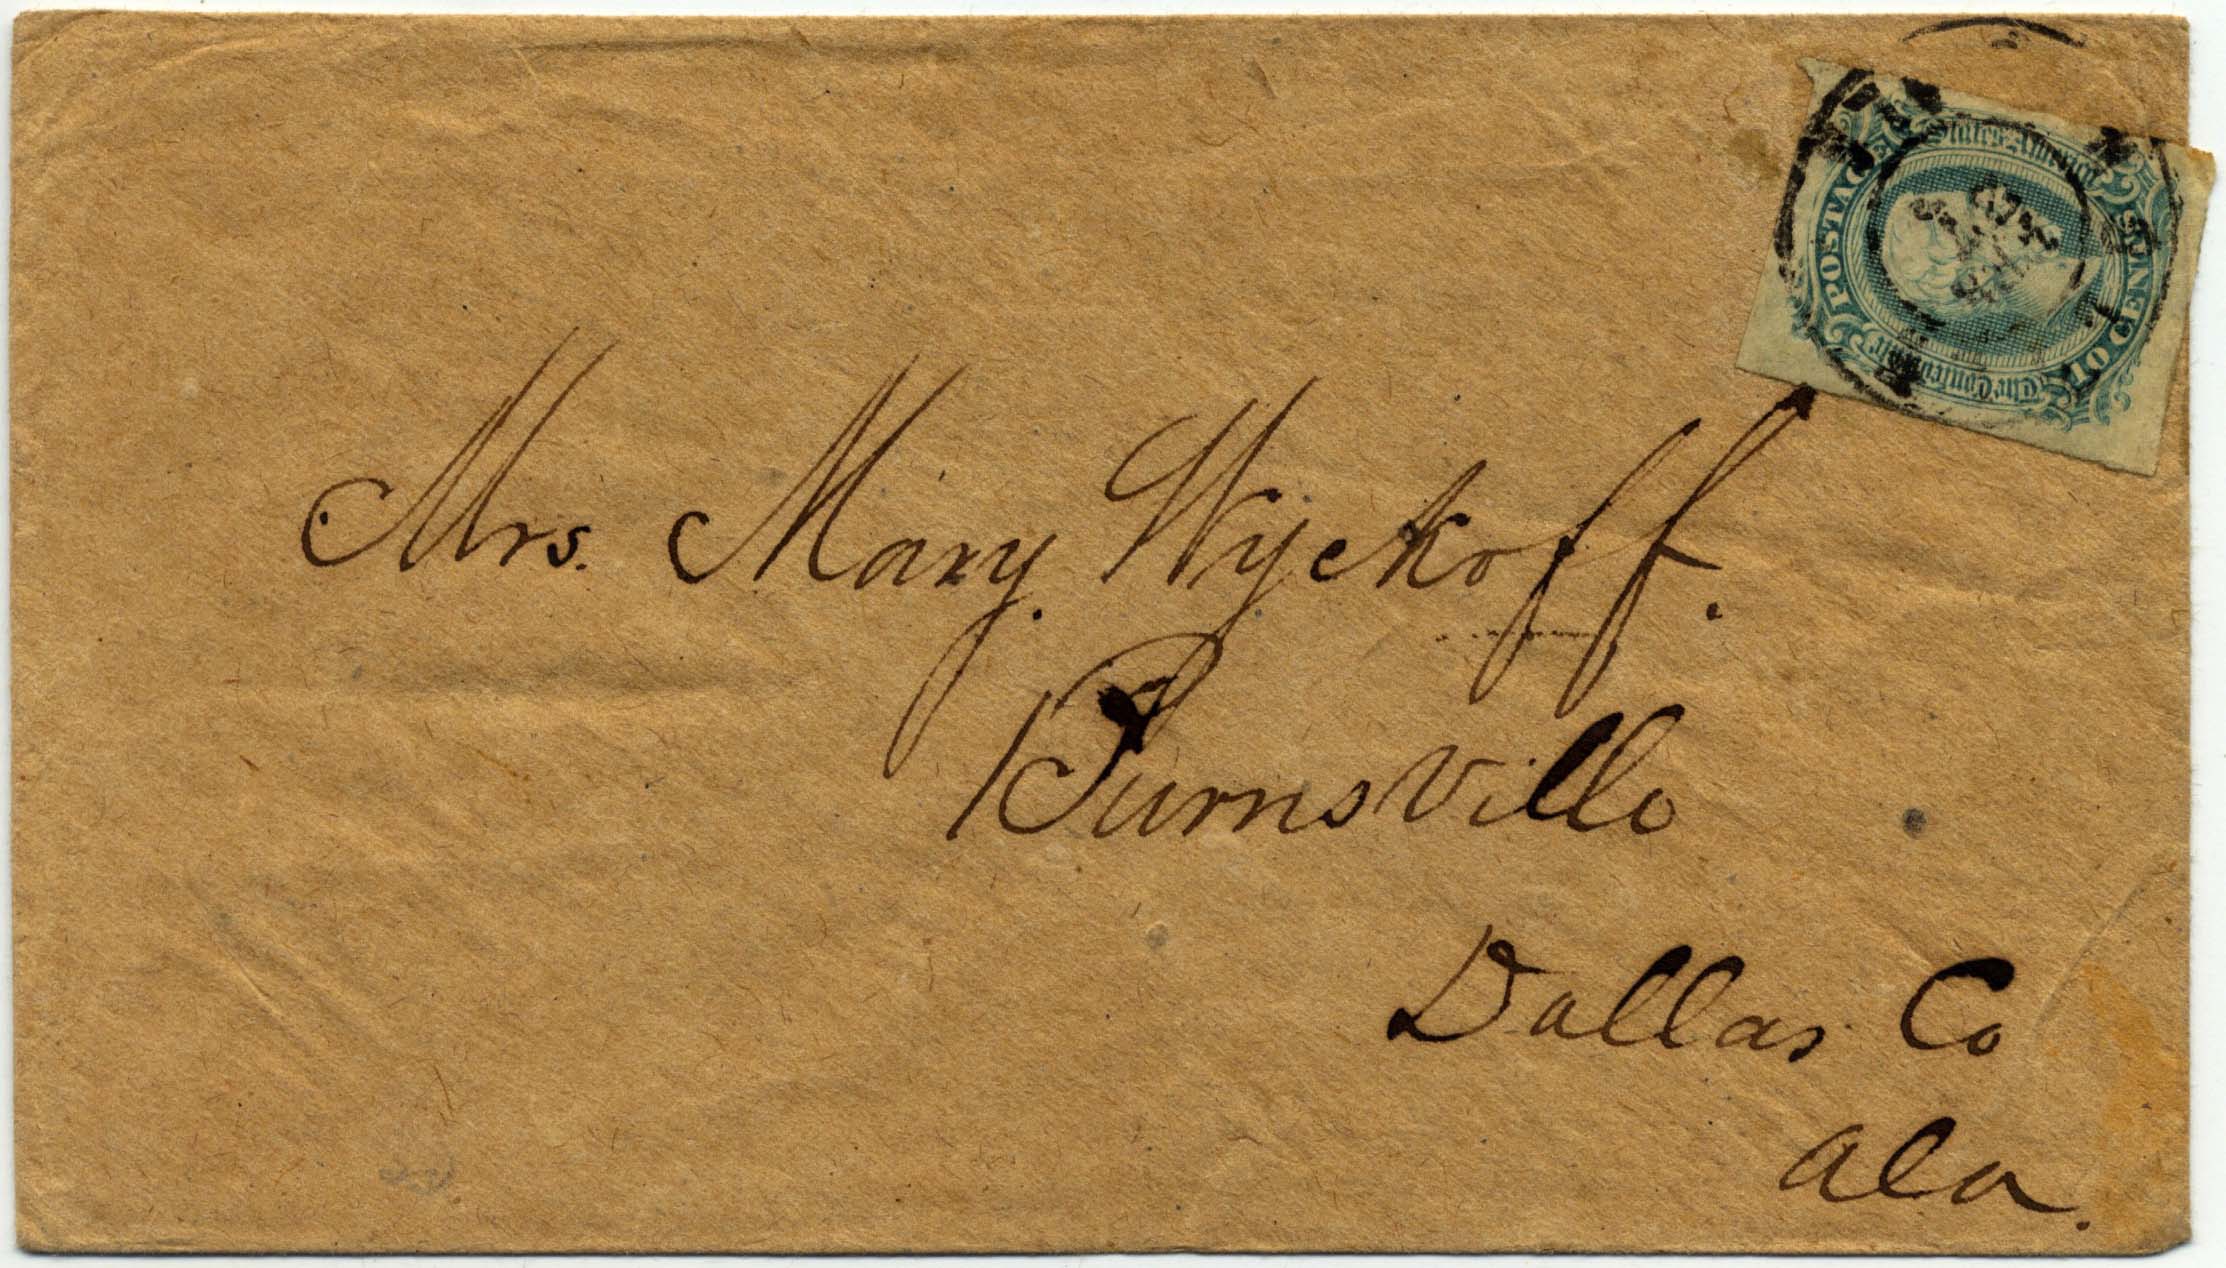 Mrs. Mary Wyckoff.
Burnsville
Dallas Co
Ala.
The Confederate States America
POSTAGE
10 CENTS